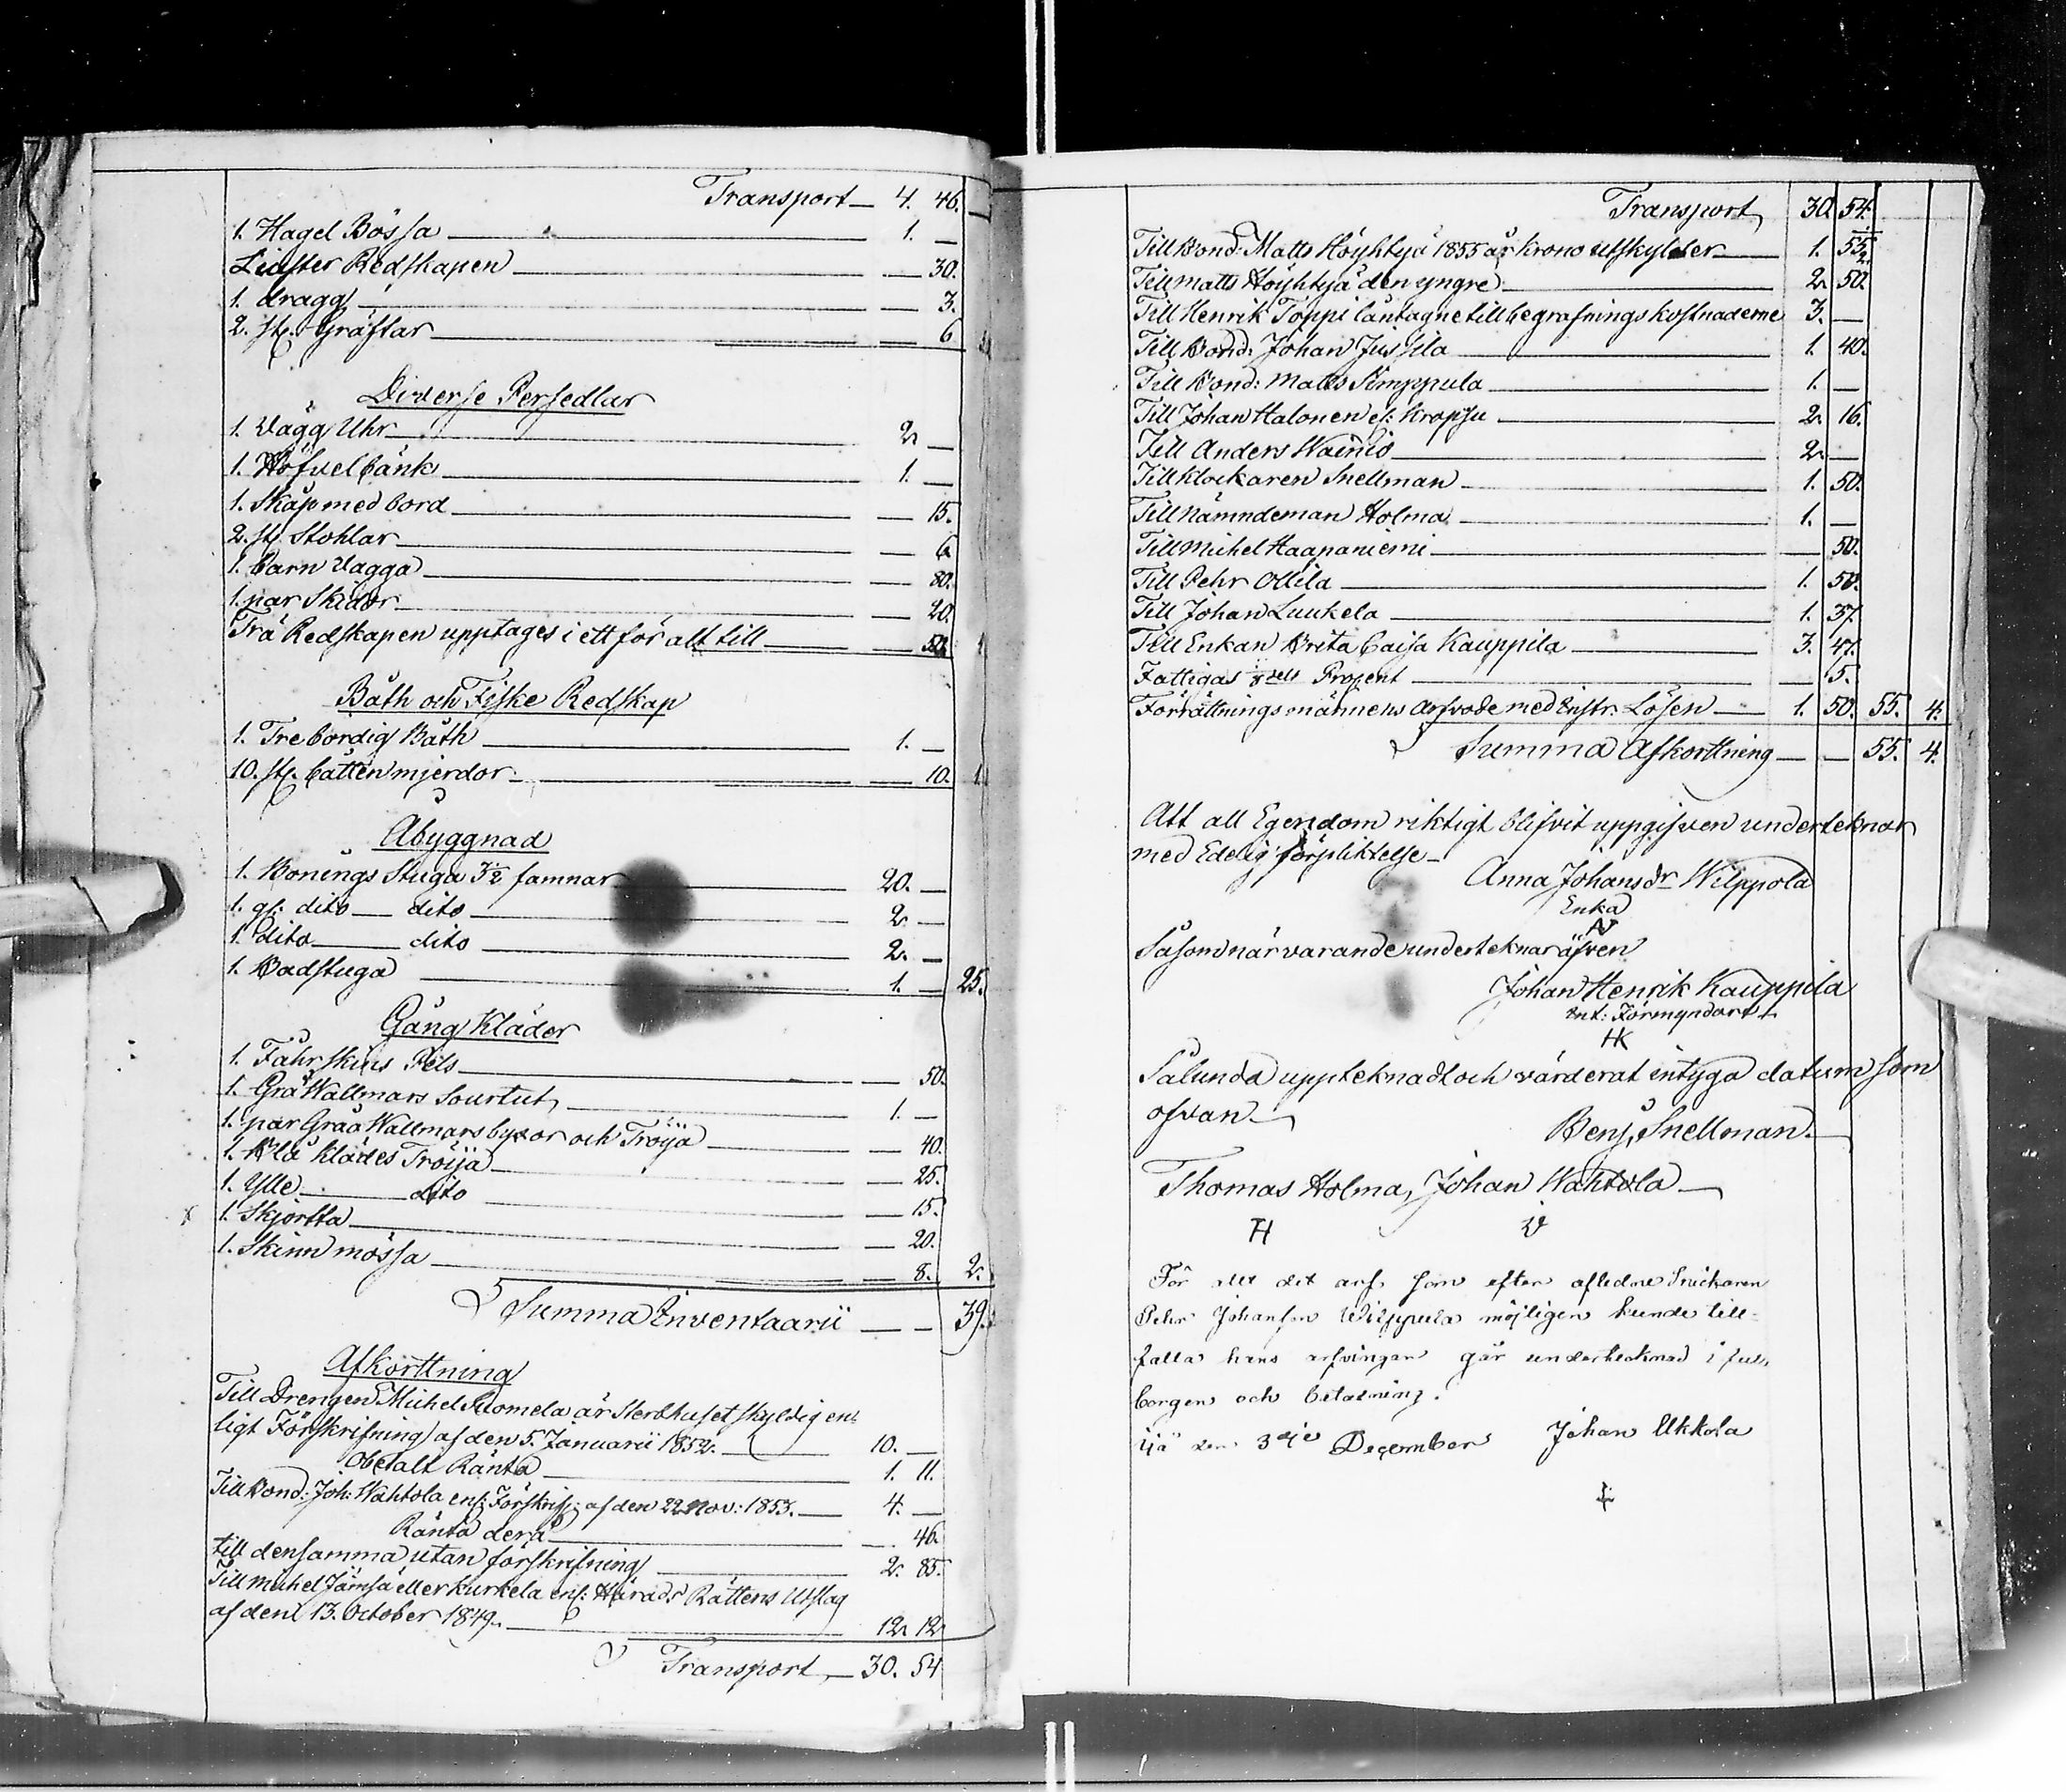 Transport — 4. 46.
1. Hagel Bössa — 1. —
Liaster Redskapen — 30.
1. dragg — 3.
2. st. Gräftar — 6
Diverse Persedlar
1. Vägg Uhr — 2. —
1. Höfvelbänk — 1. —
1. Skåp med bord — 15.
2. st. Stohlar — 6
1. barn Vagga — 80.
1. par Skidor — 20.
Trä Redskapen upptages i ett för alt till — 50.
Båth och Fiske Redskap
1. Trebordig Båth — 1. —
10. st. Catten mjerdor — 10.
Åbyggnad
1. Bonings Stuga 3½ famnar — 20. —
1. gl: dito — dito — 2. —
1. dito — dito — 2. —
1. Badstuga — 1. — 25.
Gång Kläder
1. Fåhrskins Pels — 50.
1. Grå Wallmars Sourtut — 1. —
1. par Gråa Wallmars byxor och Tröija — 40.
1. Blå Klädes Tröija — 25.
1. Ylle — dito — 15.
1. Skjortta — 20.
1. Skinn mössa — 8. 2.
Summa Inventaarii — — 39.
Afkorttning
Till Drengen Michel Suomela är Sterbhuset skyldig en-
ligt Förskrifning af den 5. Januarii 1852. — 10. —
Obetalt Ränta — 1. 11.
Till Bond: Joh: Wahtola enl: Förskrif: af den 22 Nov: 1853. — 4. —
Ränta derå — 46.
till densamma utan förskrifning — 2. 85.
Till Michel Jämsä eller Kurkela enl: Härads Rättens Utslag
af den 13. October 1849. — 12. 12
Transport — 30. 54
Transport 30. 54.
Till Bond: Matts Höyhtyä 1855 år krono utskylder — 1. 55½
Till Matts Höyhtyä den yngre — 2. 50.
Till Henrik Toppi låntagne till begrafnings kostnaderne 3. —
Till Bond: Johan Jussila — 1. 40.
Till Bond: Matts Simppula — 1. —
Till Johan Halonen el: Kropsu — 2. 16.
Till Anders Wainio — 2. —
Till Klockaren Snellman — 1. 50.
Till Nämndeman Holma — 1. —
Till Michel Haapaniemi — 50.
Till Pehr Ollila — 1. 50.
Till Johan Luukela — 1. 37.
Till Enkan Brita Caisa Kauppila — 3. 47.
Fattigas Procent — 5.
Förrättnings männens Arfvode med Lösen — 1. 50. 55. 4.
Summa Afkorttning — — 55. 4.
Att all Egendom riktigt blifvit uppgifven underteknar
med Edelig förpliktelse —
Anna Johansdr Wilppola
Enka
Såsom närvarande underteknar äfven
Johan Henrik Kauppila
Förmyndare
HK
Sålunda uppteknadt och värderat intyga datum som
ofvan —
Benj. Snellman.
Thomas Holma, Johan Wahtola —
TH
För allt det arf, som efter aflidne Snickaren
Pehr Johansson Wilppula möjligen kunde till-
falla hans arfvingar går undertecknad i full
borgen och betalning.
Ijå den 3dje December Johan Ukkola